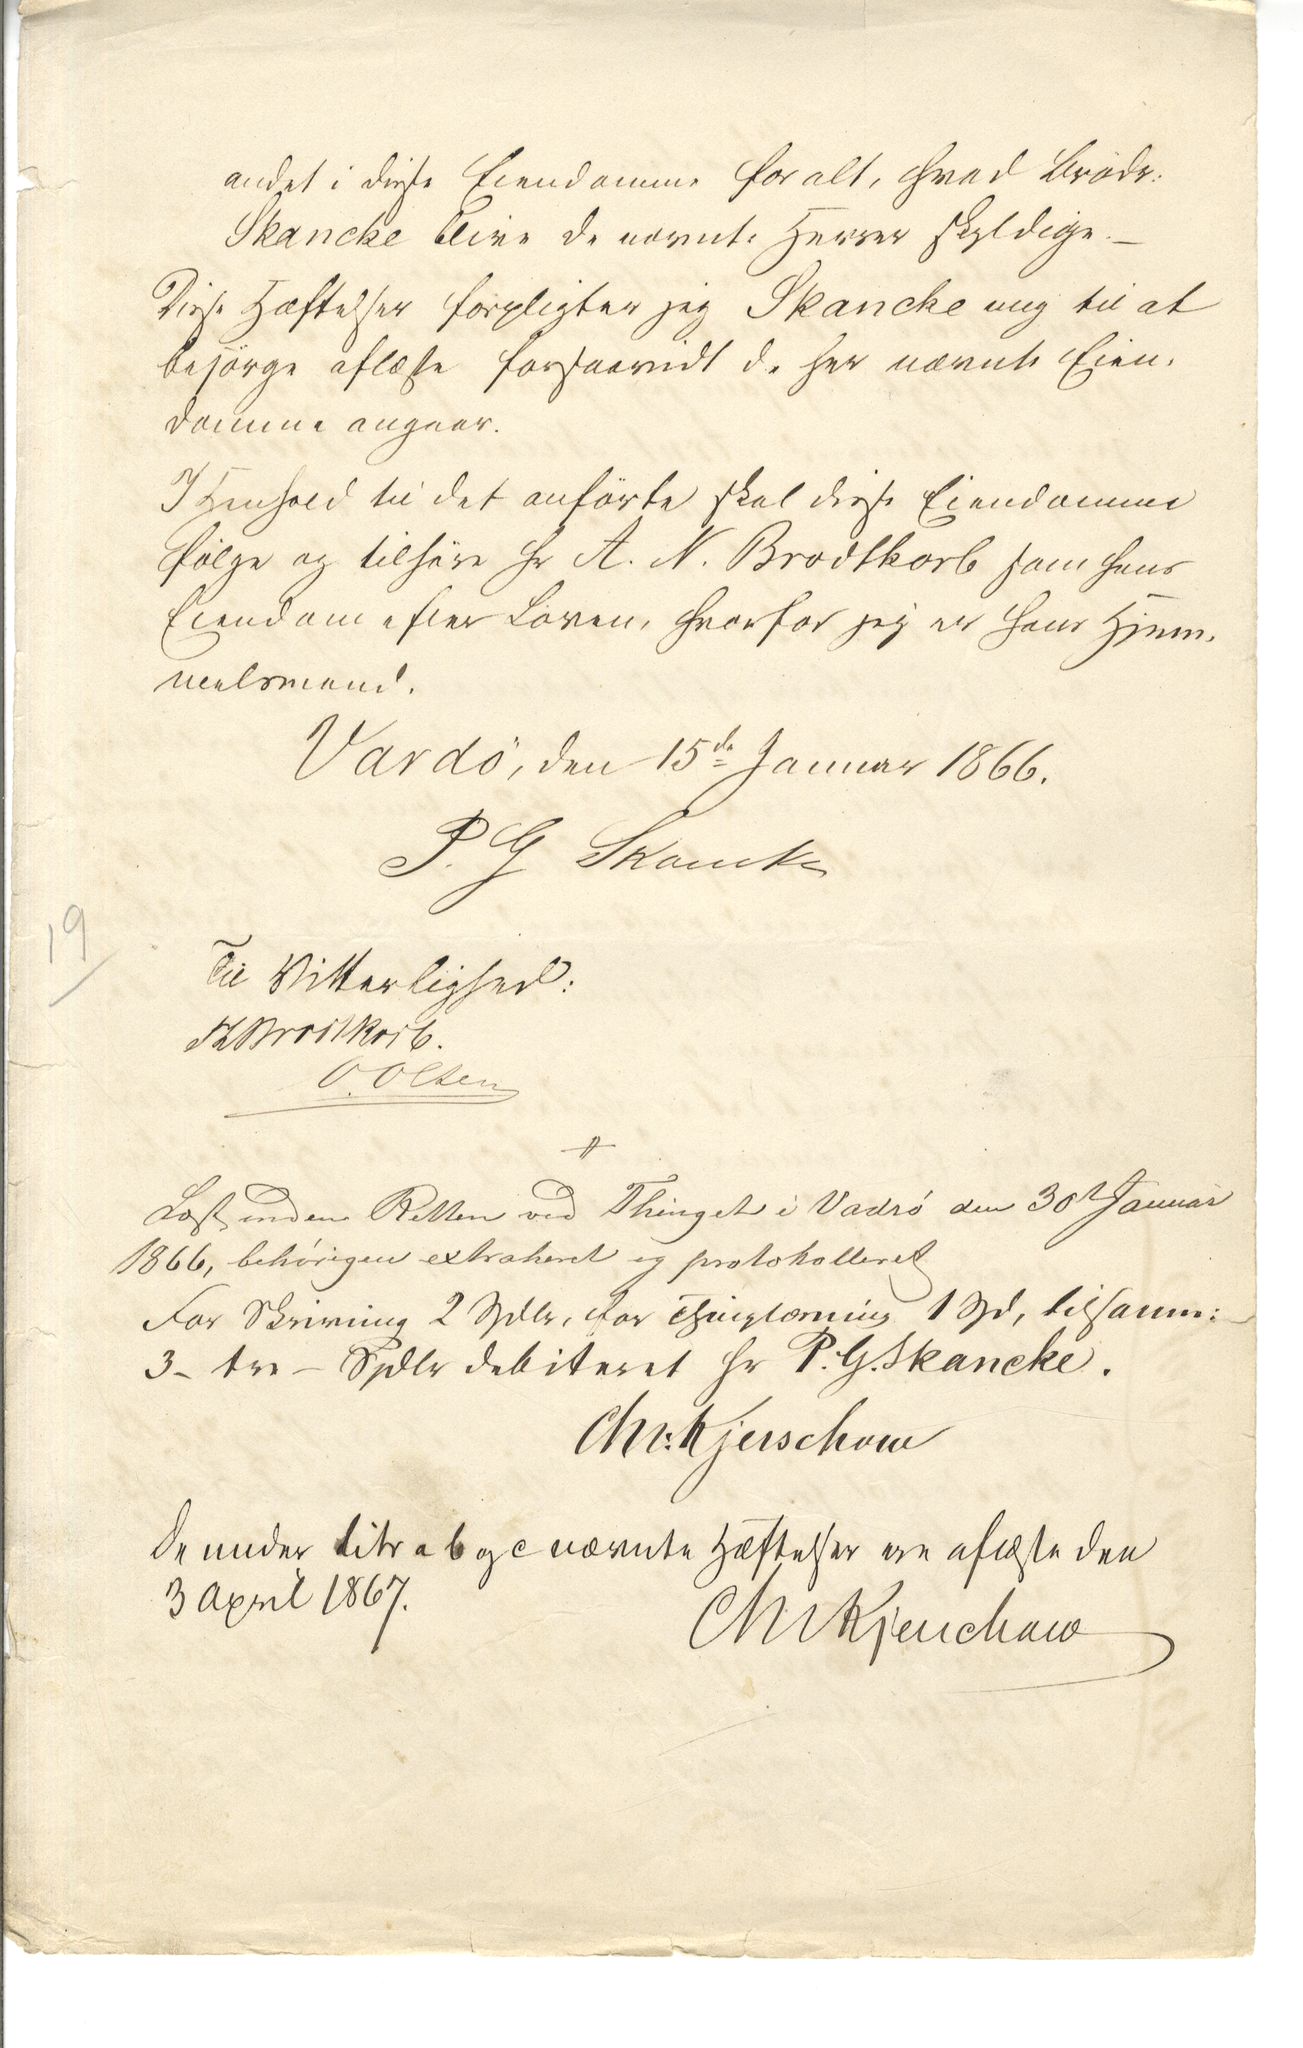 andet i disse Eiendomme for alt, hvad Brødr:
Skancke blive de nævnte Herrer skyldige.—
Disse Hæftelser forpligter jeg Skancke mig til at
besørge aflæste forsaavidt de her nævnte Eien-
domme angaar.
I Henhold til det anførte skal disse Eiendomme
følge og tilhøre Hr A. N. Brodtkorb som hans
Eiendom efter Loven, hvorfor jeg er hans Hjem-
melsmand.
Vardö, den 15de Januar 1866.
P. G Skancke
19
Til Vitterlighed:
Brodtkorb.
O. Olsen
Læst inden Retten ved Thinget i Vadsö den 30t Januar
1866, behörigen extraheret og protokolleret
For Skrivning 2 Spdlr, for Thinglæsning 1 Spd, tilsamm:
3 – tre – Spdlr debiteret Hr P. G. Skancke.
Chr: Kjerschow
De under Litr a b og c nævnte Hæftelser ere aflæste den
3 April 1867.
Chr Kjerschow